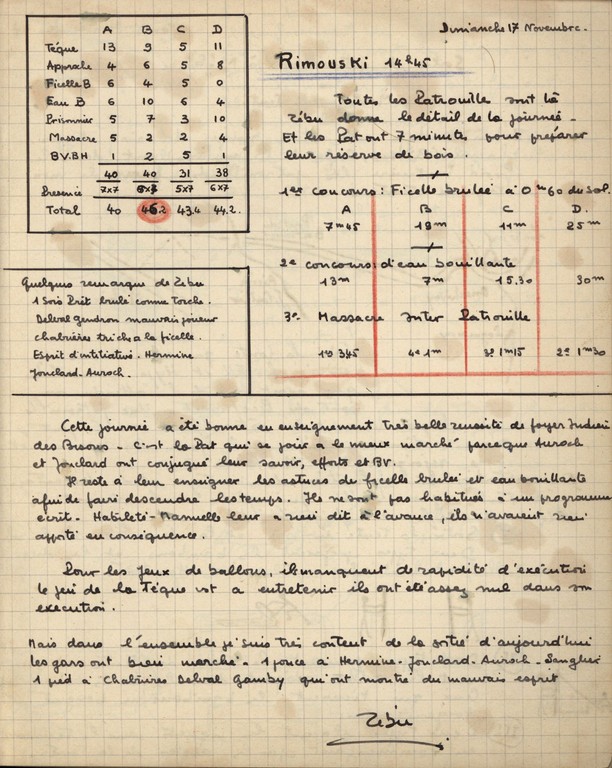 Dimanche 17 Novembre.
A B C D
Téque 13 9 5 11
Approche 4 6 5 8
Ficelle B 6 4 5 0
Eau B 6 10 6 4
Prisonnier 5 7 3 10
Massacre 5 2 2 4
BV.BH 1 2 5 1
40 40 31 38
Presence 7x7 5x7 6x7
Total 40 46.2 43.4 44.2.
Rimouski 14h45
Toutes les Patrouille sont là
Zébu donne le détail de la journée -
Et les Pat ont 7 minutes pour préparer
leur réserve de bois.
1er concours: Ficelle brulée à 0m60 du sol.
A B C D.
7m45 19m 11m 25m
2e concours: d'eau bouillante
13m 7m 15.30 30m
3e- Massacre Inter Patrouille
1° 345 4e 1m 3° 1m15 2e 1m30
Quelques remarque de Zebu
1 Sois Prêt brulé comme torche.
Delval gendron mauvais joueur
chabrières triche a la ficelle.
Esprit d'intitiative. Hermine
Jonclard-Auroch.
Cette journée a été bonne en enseignement très belle reussite de foyer Indien
des Bisons - C'est la Pat qui ce soir a le mieux marché parceque Auroch
et Jonclard ont conjugué leur savoir, efforts et BV.
Il reste à leur enseigner les astuces de ficelle brulée et eau bouillante
afin de faire descendre les temps. Ils ne sont pas habitués à un programme
écrit. Habileté-Manuelle leur a rien dit à l'avance, ils n'avaient rien
apporté en conséquence.
Pour les Jeux de ballons, il manquent de rapidité d'exécution
le jeu de la Téque est a entretenir ils ont été assez nul dans son
execution.
Mais dans l'ensemble je suis très content de la sortie d'aujourd'hui
les gars ont bien marché. 1 pouce à Hermine-Jonclard-Auroch-Sanglier
1 pied à Chabrières Delval Gamby qui ont montré du mauvais esprit
Zébu